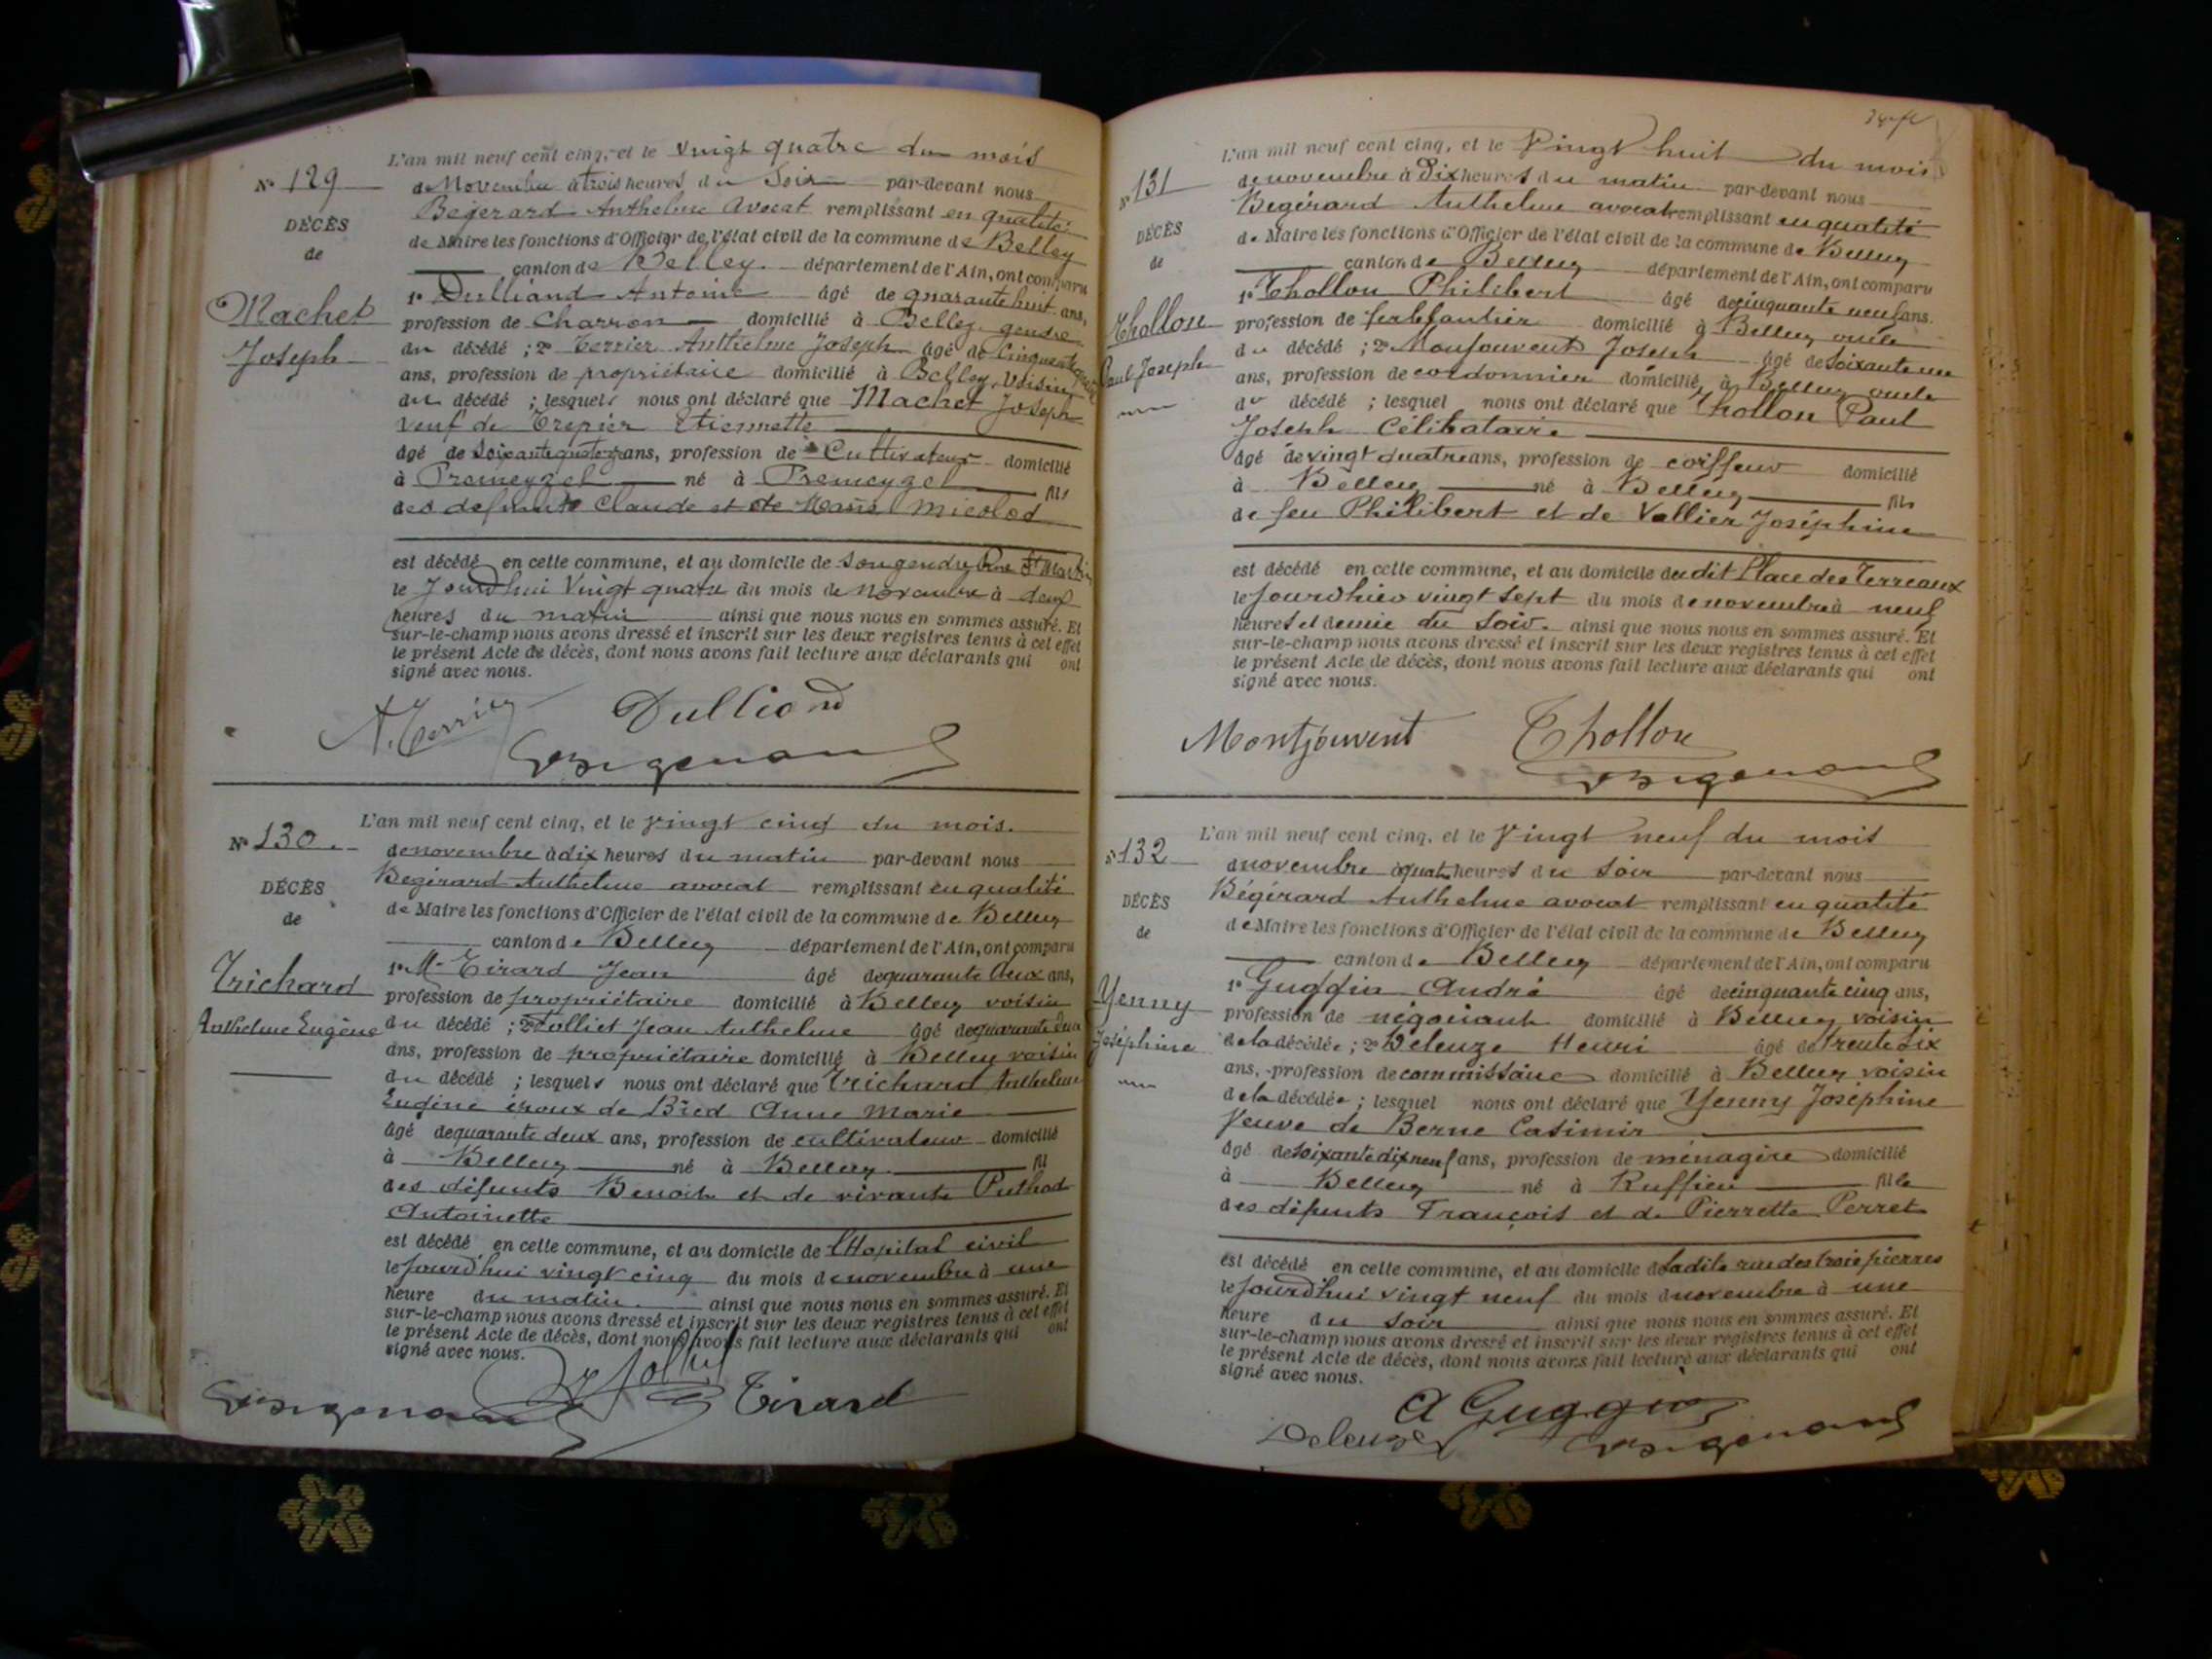 L'an mil neuf cent cinq, et le vingt quatre du mois
N° 129
de Novembre à trois heures du Soir par-devant nous
Bégérard Anthelme Avocat remplissant en qualité
DÉCÈS
de Maire les fonctions d'Officier de l'état civil de la commune de Belley
de
canton de Belley département de l'Ain, ont comparu
1° Dulliand Antoine âgé de quarante huit ans,
Machet
profession de Charron domicilié à Belley gendre
Joseph
du décédé ; 2° Terrier Anthelme Joseph âgé de Cinquante
ans, profession de propriétaire domicilié à Belley, Voisin
du décédé ; lesquels nous ont déclaré que Machet Joseph
veuf de Trepier Etiennette
âgé de Soixante quatorze ans, profession de Cultivateur domicilié
à Premeyzel né à Premeyzel fils
des défunts Claude et de Marie Micolod
est décédé en cette commune, et au domicile de Son gendre Rue St Martin
le Jourd'hui Vingt quatre du mois de Novembre à deux
heures du matin ainsi que nous nous en sommes assuré. Et
sur-le-champ nous avons dressé et inscrit sur les deux registres tenus à cet effet
le présent Acte de décès, dont nous avons fait lecture aux déclarants qui ont
signé avec nous.
A. Terrier Dulliand
L'an mil neuf cent cinq, et le Vingt cinq du mois.
N° 130
de novembre à dix heures du matin par-devant nous
Bégérard Anthelme avocat remplissant en qualité
DÉCÈS
de Maire les fonctions d'Officier de l'état civil de la commune de Belley
de
canton de Belley département de l'Ain, ont comparu
1° M. Tirard Jean âgé de quarante deux ans,
Trichard
profession de propriétaire domicilié à Belley voisin
Anthelme Eugène
du décédé ; 2° Folliet Jean Anthelme âgé de quarante deux
ans, profession de propriétaire domicilié à Belley voisin
du décédé ; lesquels nous ont déclaré que Trichard Anthelme
Eugène époux de Bied Anne Marie
âgé de quarante deux ans, profession de cultivateur domicilié
à Belley né à Belley fil
des défunts Benoit et de vivante Puthod
Antoinette
est décédé en cette commune, et au domicile de l'Hopital civil
le Jourd'hui vingt cinq du mois de novembre à une
heure du matin. ainsi que nous nous en sommes assuré. Et
sur-le-champ nous avons dressé et inscrit sur les deux registres tenus à cet effet
le présent Acte de décès, dont nous avons fait lecture aux déclarants qui ont
signé avec nous.
Tirard
L'an mil neuf cent cinq, et le Vingt huit du mois
N° 131
de novembre à Dix heures du matin par-devant nous
Bégérard Anthelme avocat remplissant en qualité
DÉCÈS
de Maire les fonctions d'Officier de l'état civil de la commune de Belley
de
canton de Belley département de l'Ain, ont comparu
1° Thollon Philibert âgé de cinquante neuf ans.
Thollon
profession de ferblantier domicilié à Belley oncle
Paul Joseph
du décédé ; 2° Monjouvent Joseph âgé de Soixante un
ans, profession de cordonnier domicilié à Belley oncle
du décédé ; lesquel nous ont déclaré que Thollon Paul
Joseph Célibataire
âgé de vingt quatre ans, profession de coiffeur domicilié
à Belley né à Belley fils
de feu Philibert et de Vallier Joséphine
est décédé en cette commune, et au domicile dudit Place des Terreaux
le Jourdhier vingt sept du mois de novembre à neuf
heures et demie du Soir. ainsi que nous nous en sommes assuré. Et
sur-le-champ nous avons dressé et inscrit sur les deux registres tenus à cet effet
le présent Acte de décès, dont nous avons fait lecture aux déclarants qui ont
signé avec nous.
Montjouvent Thollon
L'an mil neuf cent cinq, et le Vingt neuf du mois
N° 132
de novembre à quatre heures du Soir par-devant nous
Bégérard Anthelme avocat remplissant en qualité
DÉCÈS
de Maire les fonctions d'Officier de l'état civil de la commune de Belley
de
canton de Belley département de l'Ain, ont comparu
1° Guggia André âgé de cinquante cinq ans,
Yenny
profession de négociant domicilié à Belley voisin
Joséphine
de la décédée ; 2° Deleuze Henri âgé de Trente Six
ans, profession de commissaire domicilié à Belley voisin
de la décédée ; lesquel nous ont déclaré que Yenny Joséphine
Veuve de Berne Casimir
âgé de Soixante dix neuf ans, profession de ménagère domicilié
à Belley né à Ruffieu fille
des défunts François et de Pierrette Perret
est décédé en cette commune, et au domicile de Ladite rue des trois pierres
le Jourd'hui vingt neuf du mois de novembre à une
heure du Soir ainsi que nous nous en sommes assuré. Et
sur-le-champ nous avons dressé et inscrit sur les deux registres tenus à cet effet
le présent Acte de décès, dont nous avons fait lecture aux déclarants qui ont
signé avec nous.
A Guggia
Deleuze